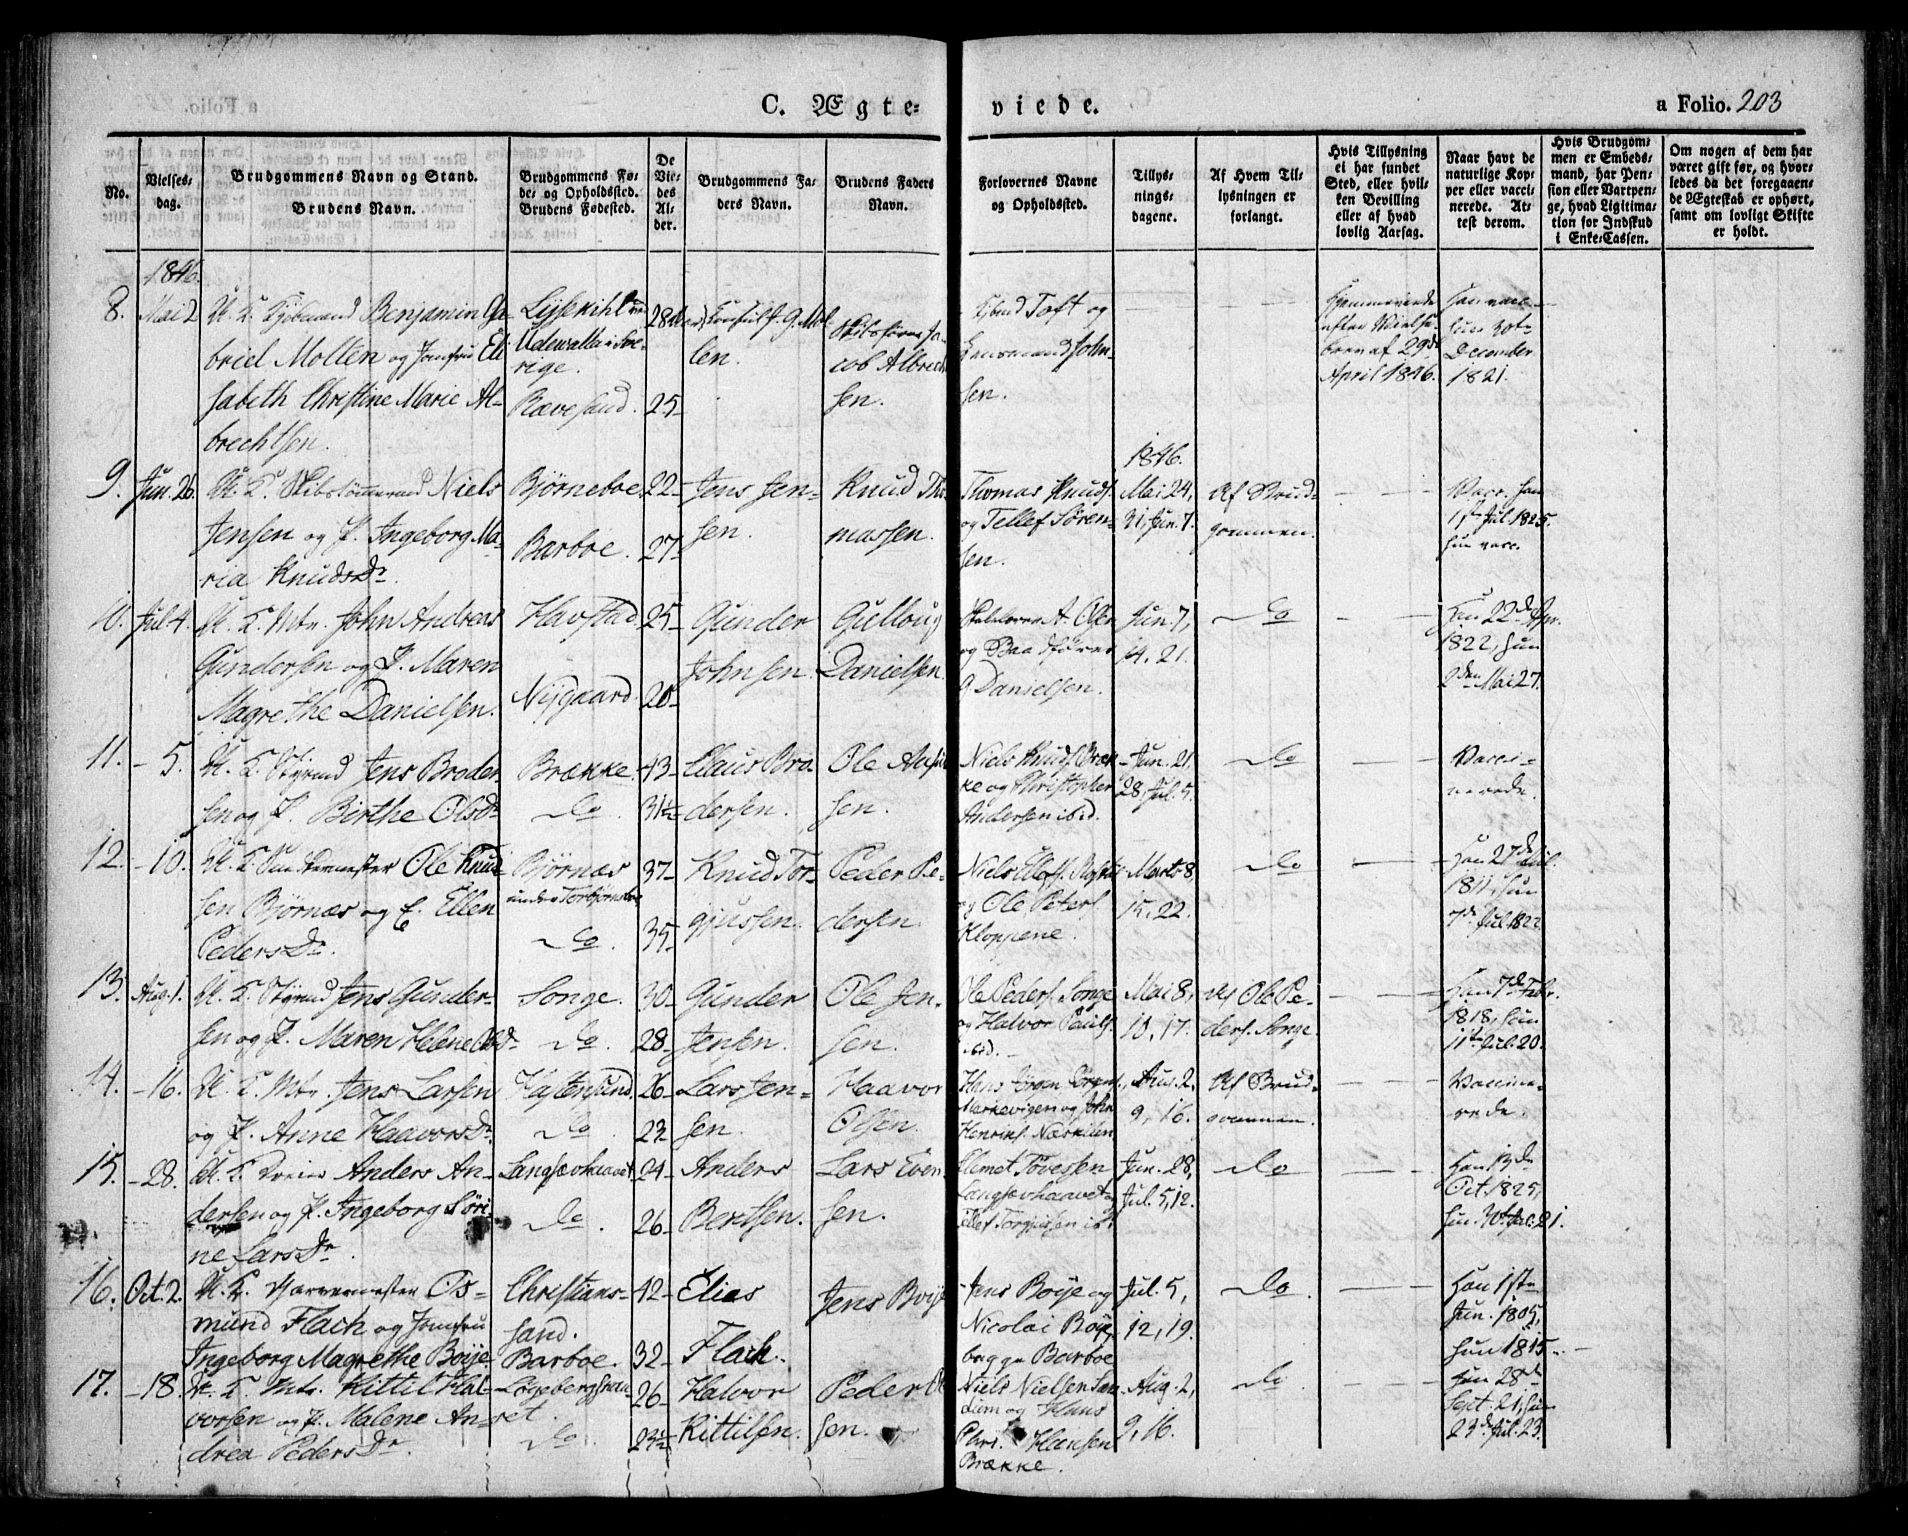 C. Ægte-
viede.
a Folio. 203
No.
Vielses-
dag.
Brudgommens Navn og Stand.
Brudens Navn.
Brudgommens Fø-
de- og Opholdssted.
Brudens Fødested.
De
Vie-
des
Al-
der.
Brudgommens Fa-
ders Navn.
Brudens Faders
Navn.
Forlovernes Navne
og Opholdssted.
Tillys-
nings-
dagene.
Af Hvem Til-
lysningen er
forlangt.
Hvis Tillysning
ei har fundet
Sted, eller hvil-
ken Bevilling
eller af hvad
lovlig Aarsag.
Naar havt de
naturlige Kop-
per eller vacci-
nerede. At-
test derom.
Hvis Brudgom-
men er Embeds-
mand, har Pen-
sion eller Vartpen-
ge, hvad Ligitima-
tion for Indskud
i Enke-Cassen.
Om nogen af dem har
været gift før, og hvor-
ledes da det foregaaen-
de Ægteskab er ophørt,
samt om lovligt Skifte
er holdt.
1846.
8. Mai 2 Benjamin Ga-
briel Molten og Jomfru Eli
sabeth Christine Marie Al-
brechtsen.
Udewalla i Sve-
rige.
Ravesand.
25
len.
cob Albrecht
sen.
Toft og
John-
sen.
efter
brev af 29de
April 1846.
December
1821.
1846.
9. Jun. 26. U. K. Niels
Jensen og P. Ingeborg Ma-
ria Knudsdr
Bjørneboe
Barboe.
22
27
Jens Jen-
sen.
Knud Tho-
massen.
Thomas Knuds.
og Tellef Søren-
sen.
Mai 24,
31, Jun. 7.
Af Brud-
gommen.
Vacc. han
1ste Jul. 1825.
hun vacc.
10. Jul 4. U. K. Mtr. John Andreas
Gundersen og P. Maren
Magrethe Danielsen.
Havstad
Nysgaard
25
20
Gunder
Johnsen
Gulloug
Danielsen.
A. Olsen
og Baadfører
G Danielsen.
Jun 7,
14, 21.
Do
Han 22de Apr.
1822, hun
2den Mai 27.
11. - 5. U. K. Styrmd Jens Broder
sen og P. Birthe Olsdr
Brække
Do
43
31½
Claus Bro
dersen.
Ole
sen.
Niels Knuds. Bræk
ke og Christopher
Andersen ibid.
Jun. 21.
28, Jul. 5.
Do
Vacci-
nerede.
12. - 10. U. K. Ole Knud
sen Bjørnæs og E. Ellen
Pedersdr
Bjørnæs
under
Do
37
35
Knud Tor-
gjussen
Peder Pe-
dersen
Niels
og Ole Peters.
Kloppene.
Marts 8,
15, 22.
Do
Han 27de Jul.
1811, hun
7de Jul. 1822.
13. Aug. 1. U. K. Styrmd Jens Gunder-
sen og P. Maren Helene Olsd
Songe.
Do.
30
28
Gunder
Jensen.
Ole Jen-
sen.
Ole Peders. Songe
og Halvor Pauls.
ibid.
Mai 8,
10, 17.
Af Ole Pe-
ders. Songe.
Han 7de Febr.
1818, hun
11te Jul. 20.
14. - 16. U. K. Mtr. Jens Larsen
og P. Anne Haavorsdr
Hastensund
Do
26
23
Lars Jen-
sen.
Haavor
Olsen.
Hans Jørgen
og John
Henriks. Næskilen
Aug. 2.
9, 16.
Af Brud-
gommen.
Vaccine-
rede.
15. - 28. U. K. Anders An-
dersen og P. Ingeborg Søri-
ne Larsdr
Langsævhaavet
Do
24
26
Anders
Bertsen.
Lars Even
sen.
Clemet Tovessen
Langsævhaavet og
Jun. 28,
Jul. 5, 12.
Do
Han 13de
Oct. 1825,
hun Jul. 21.
16. Oct. 2. U. K. Os-
mund Flach og Jomfru
Ingeborg Magrethe Boije
Christians-
sand.
Barboe.
42
32
Elias
Flach.
Jens Boije
Jens Boije og
Nicolai Boije
begge Barboe
Jul. 5,
12, 19.
Do
Han 1ste
Jun. 1805,
hun 1815.
17. - 18. U. K. Mtr. Kittil Hal-
vorsen og P. Malene An-
drea Pedersdr
Do
26
23½
Halvor
Kittilsen.
Peder
sen.
Niels Nielsen
og Hans
Hansen
Brække.
Aug. 2,
9, 16.
Do
Han 28de
Sept. 21, hun
23de Jul. 23.